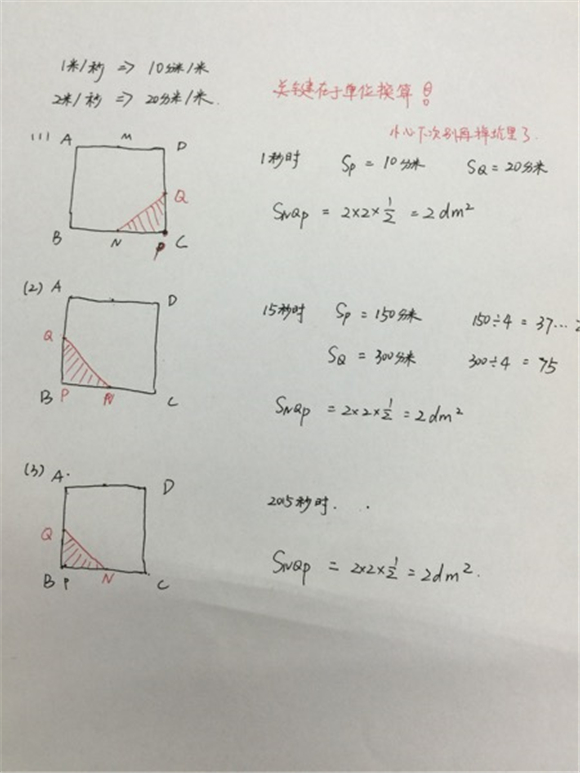 1米/秒 => 10分米/米
2米/秒 => 20分米/米.
关键在于单位换算!
小心下次别再掉坑里了.
(1) A M D
Q
B N P C
1秒时 Sp = 10分米 SQ = 20分米
SNQP = 2×2×1/2 = 2dm²
(2) A D
Q
B P N C
15秒时 Sp = 150分米 150÷4 = 37...2
SQ = 300分米 300÷4 = 75
SNQP = 2×2×1/2 = 2dm²
(3) A. D
Q
B P N C
2015秒时. .
SNQP = 2×2×1/2 = 2dm².